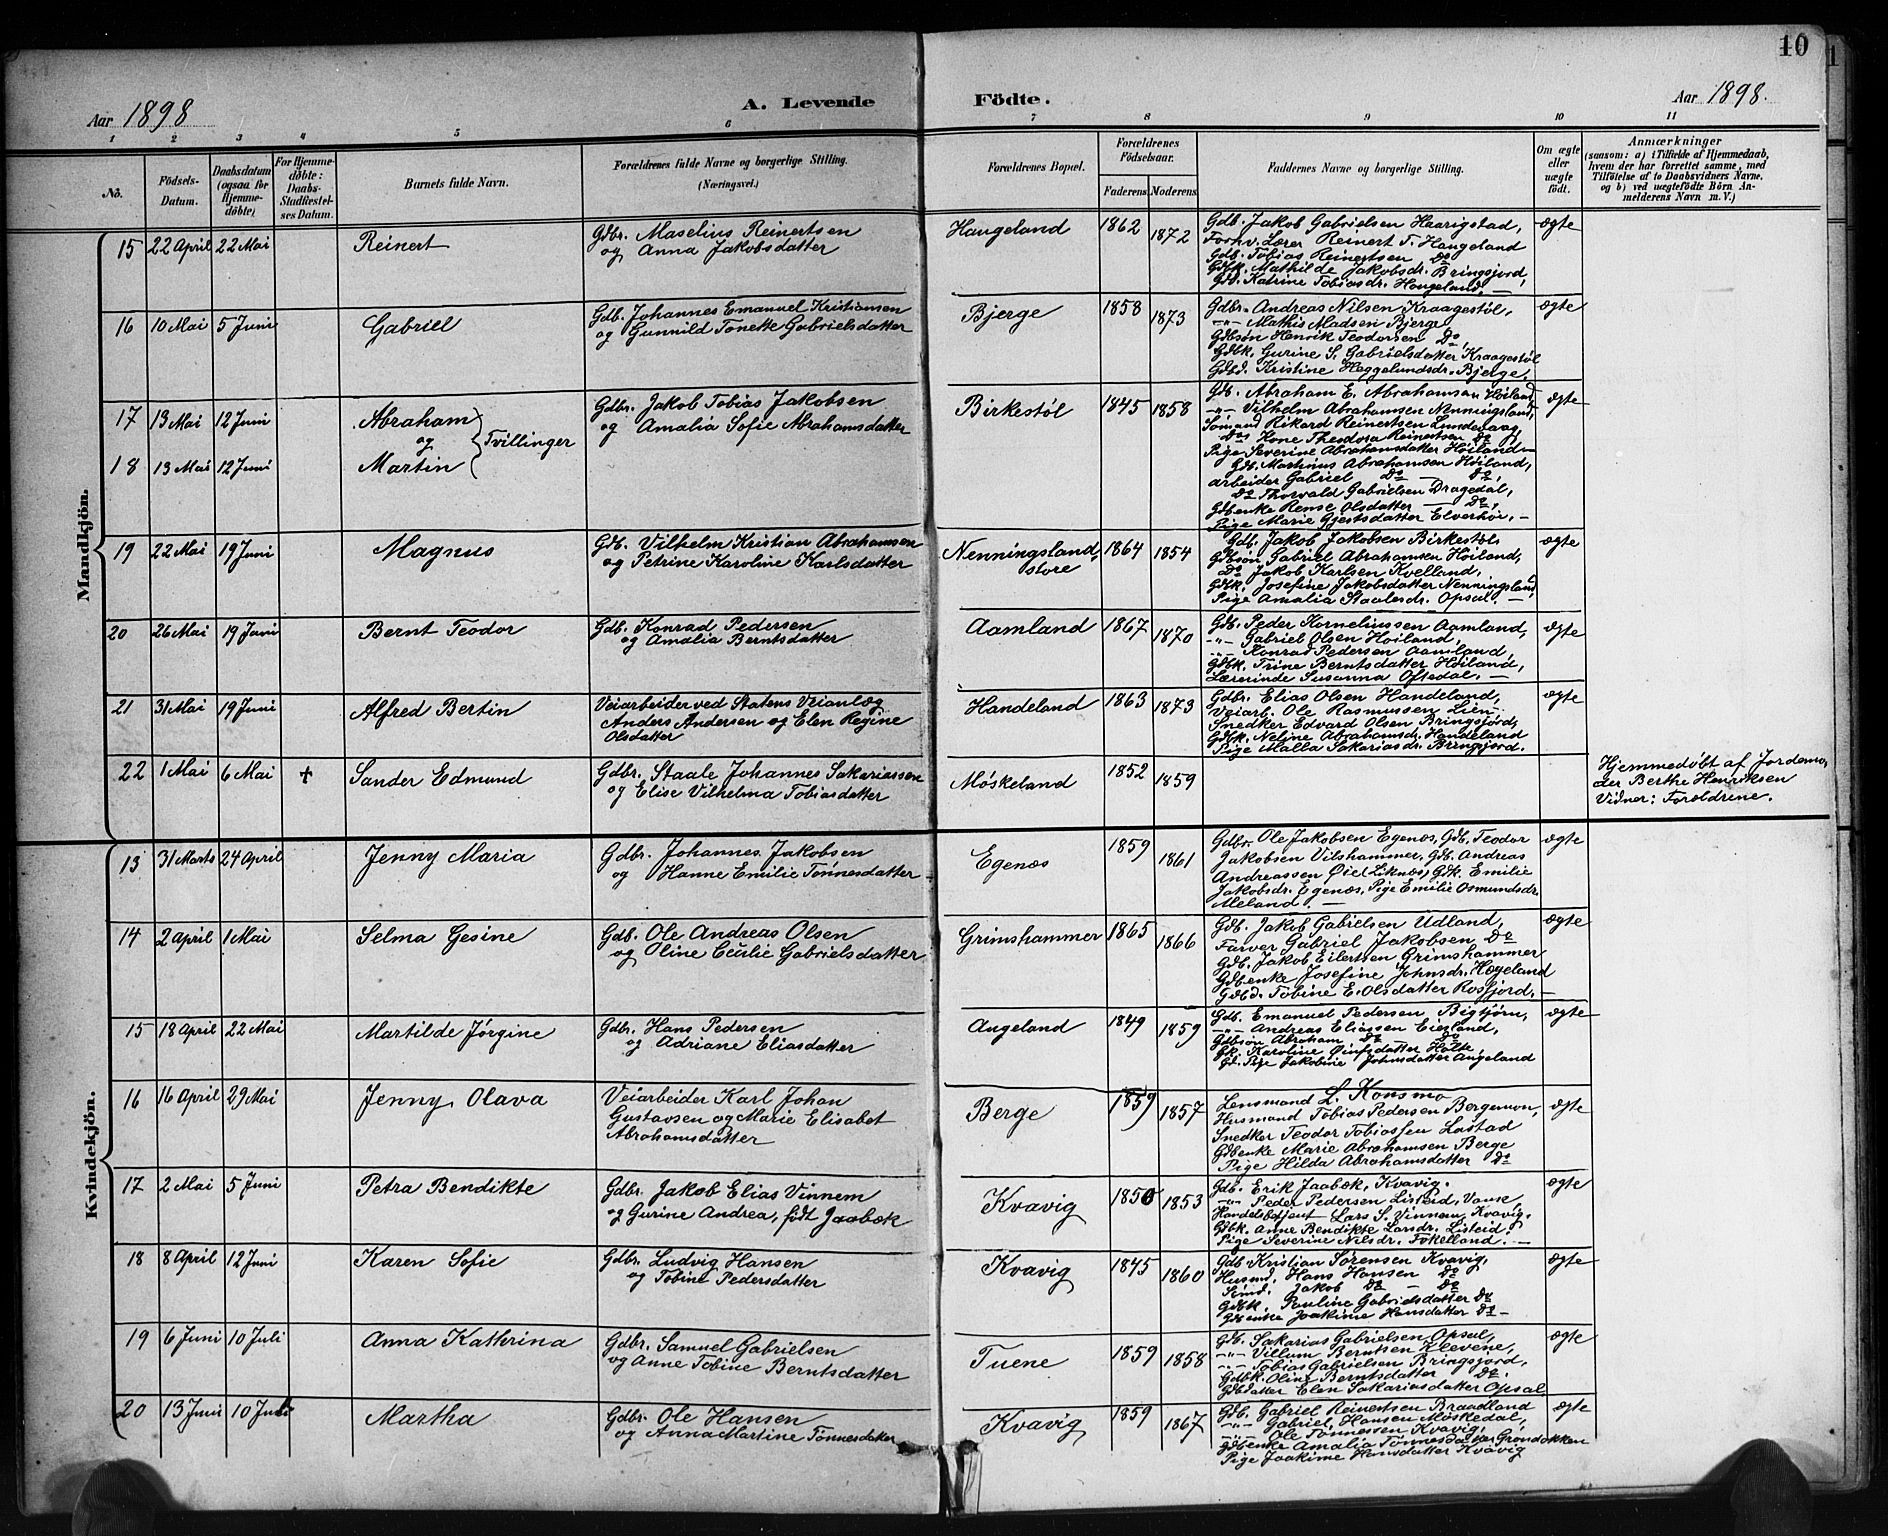 10
Aar 1898
A. Levende Födte.
Aar 1898.
1 2 3 4 5 6 7 8 9 10 11
No.
Födsels-Datum.
Daabsdatum (ogsaa for Hjemmedöbte)
For Hjemmedöbte: Daabs-Stadfæstelses Datum.
Barnets fulde Navn.
Forældrenes fulde Navne og borgerlige Stilling. (Næringsvei.)
Forældrenes Bopæl.
Forældrenes Födselsaar.
Faderens Moderens
Faddernes Navne og borgerlige Stilling.
Om ægte eller uægte födt.
Anmærkninger
(saasom: a) i Tilfælde af Hjemmedaab, hvem der har forrettet samme, med Tilföielse af to Daabsvidners Navne. og b) ved uægtefödte Börn Anmelderens Navn m. V.)
Mandkjön.
15 22 April 22 Mai Reinert
Gdbr. Maselius Reinertsen
og Anna Jakobsdatter
Haugeland 1862 1872
Gdb. Jakob Gabrielsen Haarigstad,
Forhv. Lærer Reinert T. Haugeland
Gdb. Tobias Reinertsen Do
Gdbk. Mathilde Jakobsdr. Bringsjord,
Gdd. Katrine Tobiasdr. Haugeland. —
ægte
16 10 Mai 5 Juni Gabriel
Gdb. Johannes Emanuel Kristiansen
og Gunnild Tonette Gabrielsdatter
Bjerge 1858 1873
Gdbr. Andreas Nilsen Kraagestøl,
-"- Mathis Madsen Bjerge
Gdbsøn Henrik Teodorsen Do,
Gdbk. Gurine S. Gabrielsdatter Kraagestøl
Gdbd. Kristine Heggelundsdr. Bjerge.
ægte
17 13 Mai 12 Juni Abraham
og Tvillinger
18 13 Mai 12 Juni Martin
Gdbr. Jakob Tobias Jakobsen
og Amalia Sofie Abrahamsdatter
Birkestøl 1845 1858
Gdb. Abraham E. Abrahamsen Høiland
-"- Vilhelm Abrahamsen Nenningsland,
Sømand Rikard Reinertsen Lundevaag,
Ds Kone Theodora Reinertsen Do
Pige Severine Abrahamsdatter Høiland—
Gdb. Martinus Abrahamsen Høiland,
arbeider Gabriel Do — Do,
Do Thorvald Gabrielsen Dragedal,
Gdbenke Rense Olsdatter — Do,
Pige Marie Gjestsdatter Elverhøi. —
ægte
19 22 Mai 19 Juni Magnus
Gdb. Vilhelm Kristian Abrahamsen
og Petrine Karoline Karlsdatter
Nenningsland, store 1864 1854
Gdb. Jakob Jakobsen Birkestøl
Gdbsøn Gabriel Abrahamsen Høiland,
Do Jakob Karlsen Kvelland,
Gdbk. Josefine Jakobsdatter Nenningsland
Pige Amalia Staalesdr. Opsal. —
ægte
20 26 Mai 19 Juni Bernt Teodor
Gdb. Konrad Pedersen
og Amalia Berntsdatter
Aamland 1867 1870
Gdb. Peder Korneliussen Aamland,
-"- Gabriel Olsen Høiland,
-"- Konrad Pedersen Aamland,
Gdbk. Trine Berntsdatter Høiland,
Lærerinde Susanna Oftedal. —
ægte
21 31 Mai 19 Juni Alfred Bertin
Veiarbeider ved Statens Veianlæg
Anders Andersen og Elen Regine
Olsdatter
Handeland 1863 1873
Gdbr. Elias Olsen Handeland,
Veiarb. Ole Rasmussen Lien
Snedker Edvard Olsen Bringsjord,
Gdbk. Neline Abrahamsdr. Handeland
Pige Malla Sakariasdr. Bringsjord.
ægte
22 1 Mai 6 Mai + Sander Edmund
Gdbr. Staale Johannes Sakariassen
og Elise Vilhelma Tobiasdatter
Møskeland 1852 1859
Hjemmedøbt af Jordemo-
der Berthe Henriksen
Vidner: Forældrene.
Kvindekjön.
13 31 Marts 24 April Jenny Maria
Gdbr. Johannes Jakobsen
og Hanne Emilie Tønnesdatter
Egenæs 1859 1861
Gdbr. Ole Jakobsen Egenæs, Gdb. Teodor
Jakobsen Vilshammer, Gdb. Andreas
Andreassen Øie (Liknæs), Gdk. Emilie
Jakobsdr. Egenæs, Pige Emilie Osmundsdr.
Meland. —
ægte
14 2 April 1 Mai Selma Gesine
Gdb. Ole Andreas Olsen
og Oline Cecilie Gabrielsdatter
Grimshammer 1865 1866
Gdb. Jakob Gabrielsen Udland,
Farver Gabriel Jakobsen Do
Gdb. Jakob Eilertsen Grimshammer
Gdbenke Josefine Johnsdr. Hægeland
Gdbd. Tobine E. Olsdatter Rosfjord. —
ægte
15 18 April 22 Mai Martilde Jørgine
Gdbr. Hans Pedersen
og Adriane Eliasdatter
Angeland 1849 1859
Gdb. Emanuel Pedersen Bigtjörn,
-"- Andreas Eliassen Eiesland,
Gdbsøn Abraham Do Do
Gk. Karoline Holte,
Gd. Pige Jakobine Johnsdatter Angeland
ægte
16 16 April 29 Mai Jenny Olava
Veiarbeider Karl Johan
Gustavsen og Marie Elisabet
Abrahamsdatter
Berge 1859 1857
Lensmand L. Konsmo
Husmand Tobias Pedersen Bergemon,
Snedker Teodor Tobiassen Lastad
Gdbenke Marie Abrahamsen Berge
Pige Hilda Abrahamsdatter Do
ægte
17 2 Mai 5 Juni Petra Bendikte
Gdbr. Jakob Elias Vinnem
og Gurine Andrea, født Jaabæk
Kvavig 1850 1853
Gdb. Erik Jaabæk, Kvavig.
-"- Peder Pedersen Listeid, Vanse
Handelsbetjent Lars S. Vinnem, Kvavig,
Gdbk. Anne Bendikte Larsdr. Listeid,
Pige Severine Nilsdr. Fokelland. —
ægte
18 8 April 12 Juni Karen Sofie
Gdbr. Ludvig Hansen
og Tobine Pedersdatter
Kvavig 1845 1860
Gdb Kristian Sørensen Kvavig,
Husmd. Hans Hansen Do
Smd. Jakob Do — Do
Gdbk. Pauline Gabrielsdatter Do
Gdbenke Joakime Hansdatter Do —
ægte
19 6 Juni 10 Juli Anna Kathrina
Gdbr. Samuel Gabrielsen
og Anne Tobine Berntsdatter
Tuene 1859 1858
Gdb. Sakarias Gabrielsen Opsal,
-"- Villum Berntsen Klevene,
-"- Tobias Gabrielsen Bringsjord,
Gdbk. Oline Berntsdatter Do.
Gdbdatter Elen Sakariasdatter Opsal
ægte
20 13 Juni 10 Juli Martha
Gdbr. Ole Hansen
og Anna Martine Tønnesdatter
Kvavig 1859 1867
Gdb. Gabriel Reinertsen Braadland
-"- Gabriel Hansen Møskedal,
-"- Ole Tønnessen Kvavig,
Gdbenke Amalia Tønnesdatter Grøndokken
Pige Joakime Hansdatter Kvavig
ægte